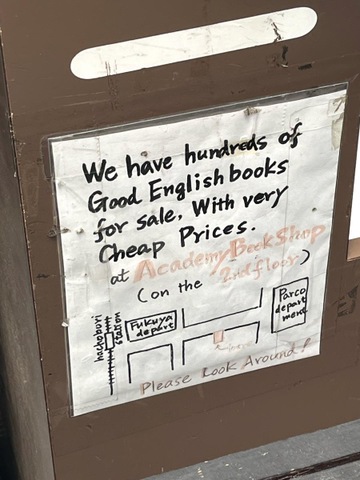 We have hundreds of
Good English books
for sale, With very
Cheap Prices.
at Academy Book Shop
(on the 2nd floor)
hachobori
station
Fukuya
depart
Parco
depart
ment
Please Look Around!